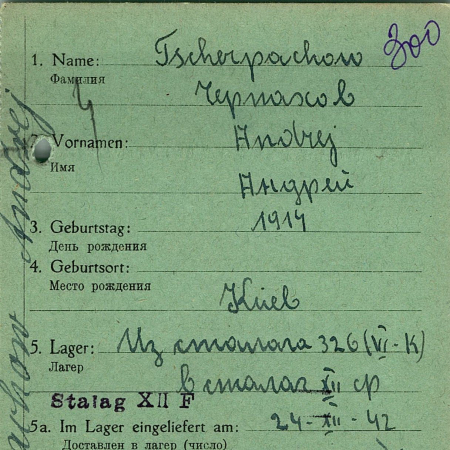 300
1. Name: Tscherpachow
Фамилия
Черпахов
2. Vornamen: Andrej
Имя
Андрей
3. Geburtstag: 1914
День рождения
4. Geburtsort:
Место рождения
Kiev
5. Lager: Из сталага 326 (VI-K)
Лагер
в сталаг XII ср
Stalag XII F
5a. Im Lager eingeliefert am: 24-XII-42
Доставлен в лагер (число)
Andrej